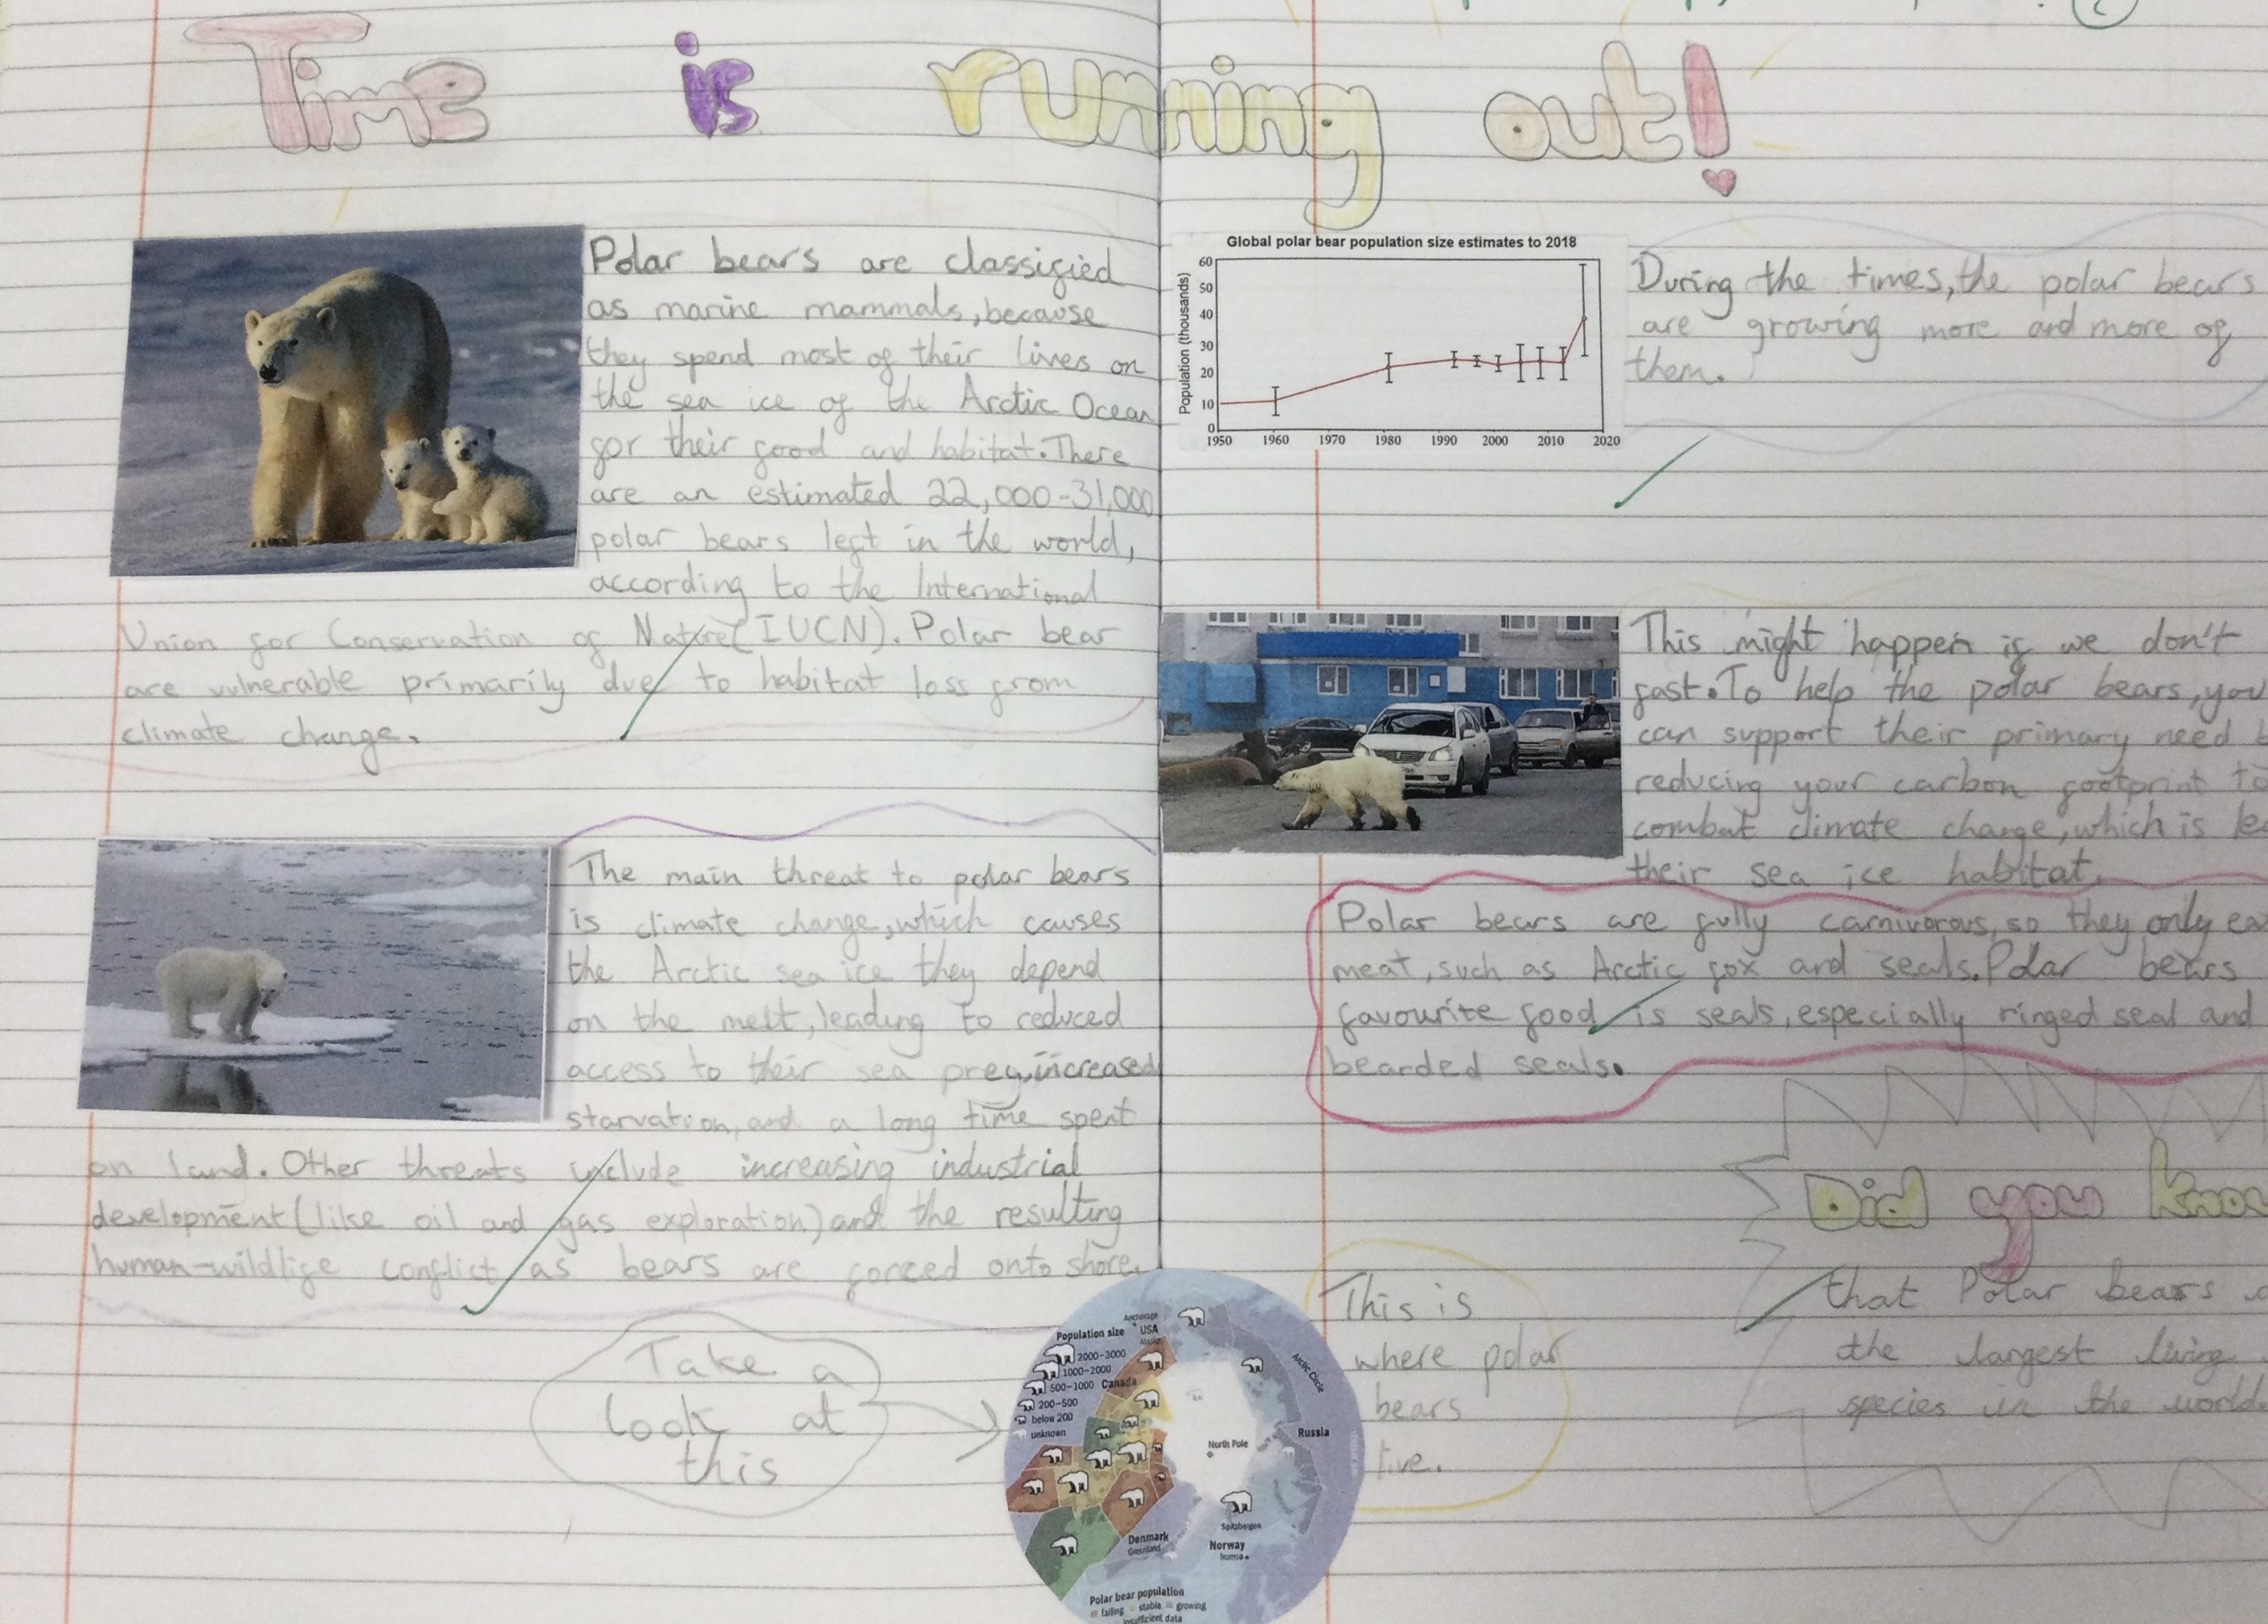 Time is running out!
Polar bears are classified
as marine mammals, because
they spend most of their lives on
the sea ice of the Arctic Ocean
for their food and habitat. There
are an estimated 22,000-31,000
polar bears left in the world,
according to the International
Union for Conservation of Nature (IUCN). Polar bear
are vulnerable primarily due to habitat loss from
climate change.
The main threat to polar bears
is climate change, which causes
the Arctic sea ice they depend
on the melt, leading to reduced
access to their sea prey, increased
starvation, and a long time spent
on land. Other threats include increasing industrial
development (like oil and gas exploration) and the resulting
human-wildlife conflict as bears are forced onto shore.
Take a
look at
this
Global polar bear population size estimates to 2018
Population (thousands)
60
50
40
30
20
10
0
1950 1960 1970 1980 1990 2000 2010 2020
During the times, the polar bears
are growing more and more of
them.
This might happen if we don't
fast. To help the polar bears, you
can support their primary need
reducing your carbon footprint to
combat climate change, which is
their sea ice habitat.
Polar bears are fully carnivorous, so they only
meat, such as Arctic fox and seals. Polar bears
favourite food is seals, especially ringed seal and
bearded seals.
Did you
that Polar bears
the largest living
species in the world
This is
where polar
bears
live.
Population size
2000-3000
1000-2000
500-1000
200-500
below 200
unknown
Anchorage
USA
Alaska
Canada
Arctic Circle
Russia
North Pole
Spitsbergen
Denmark
Greenland
Norway
Tromsø
Polar bear population
falling stable growing
insufficient data